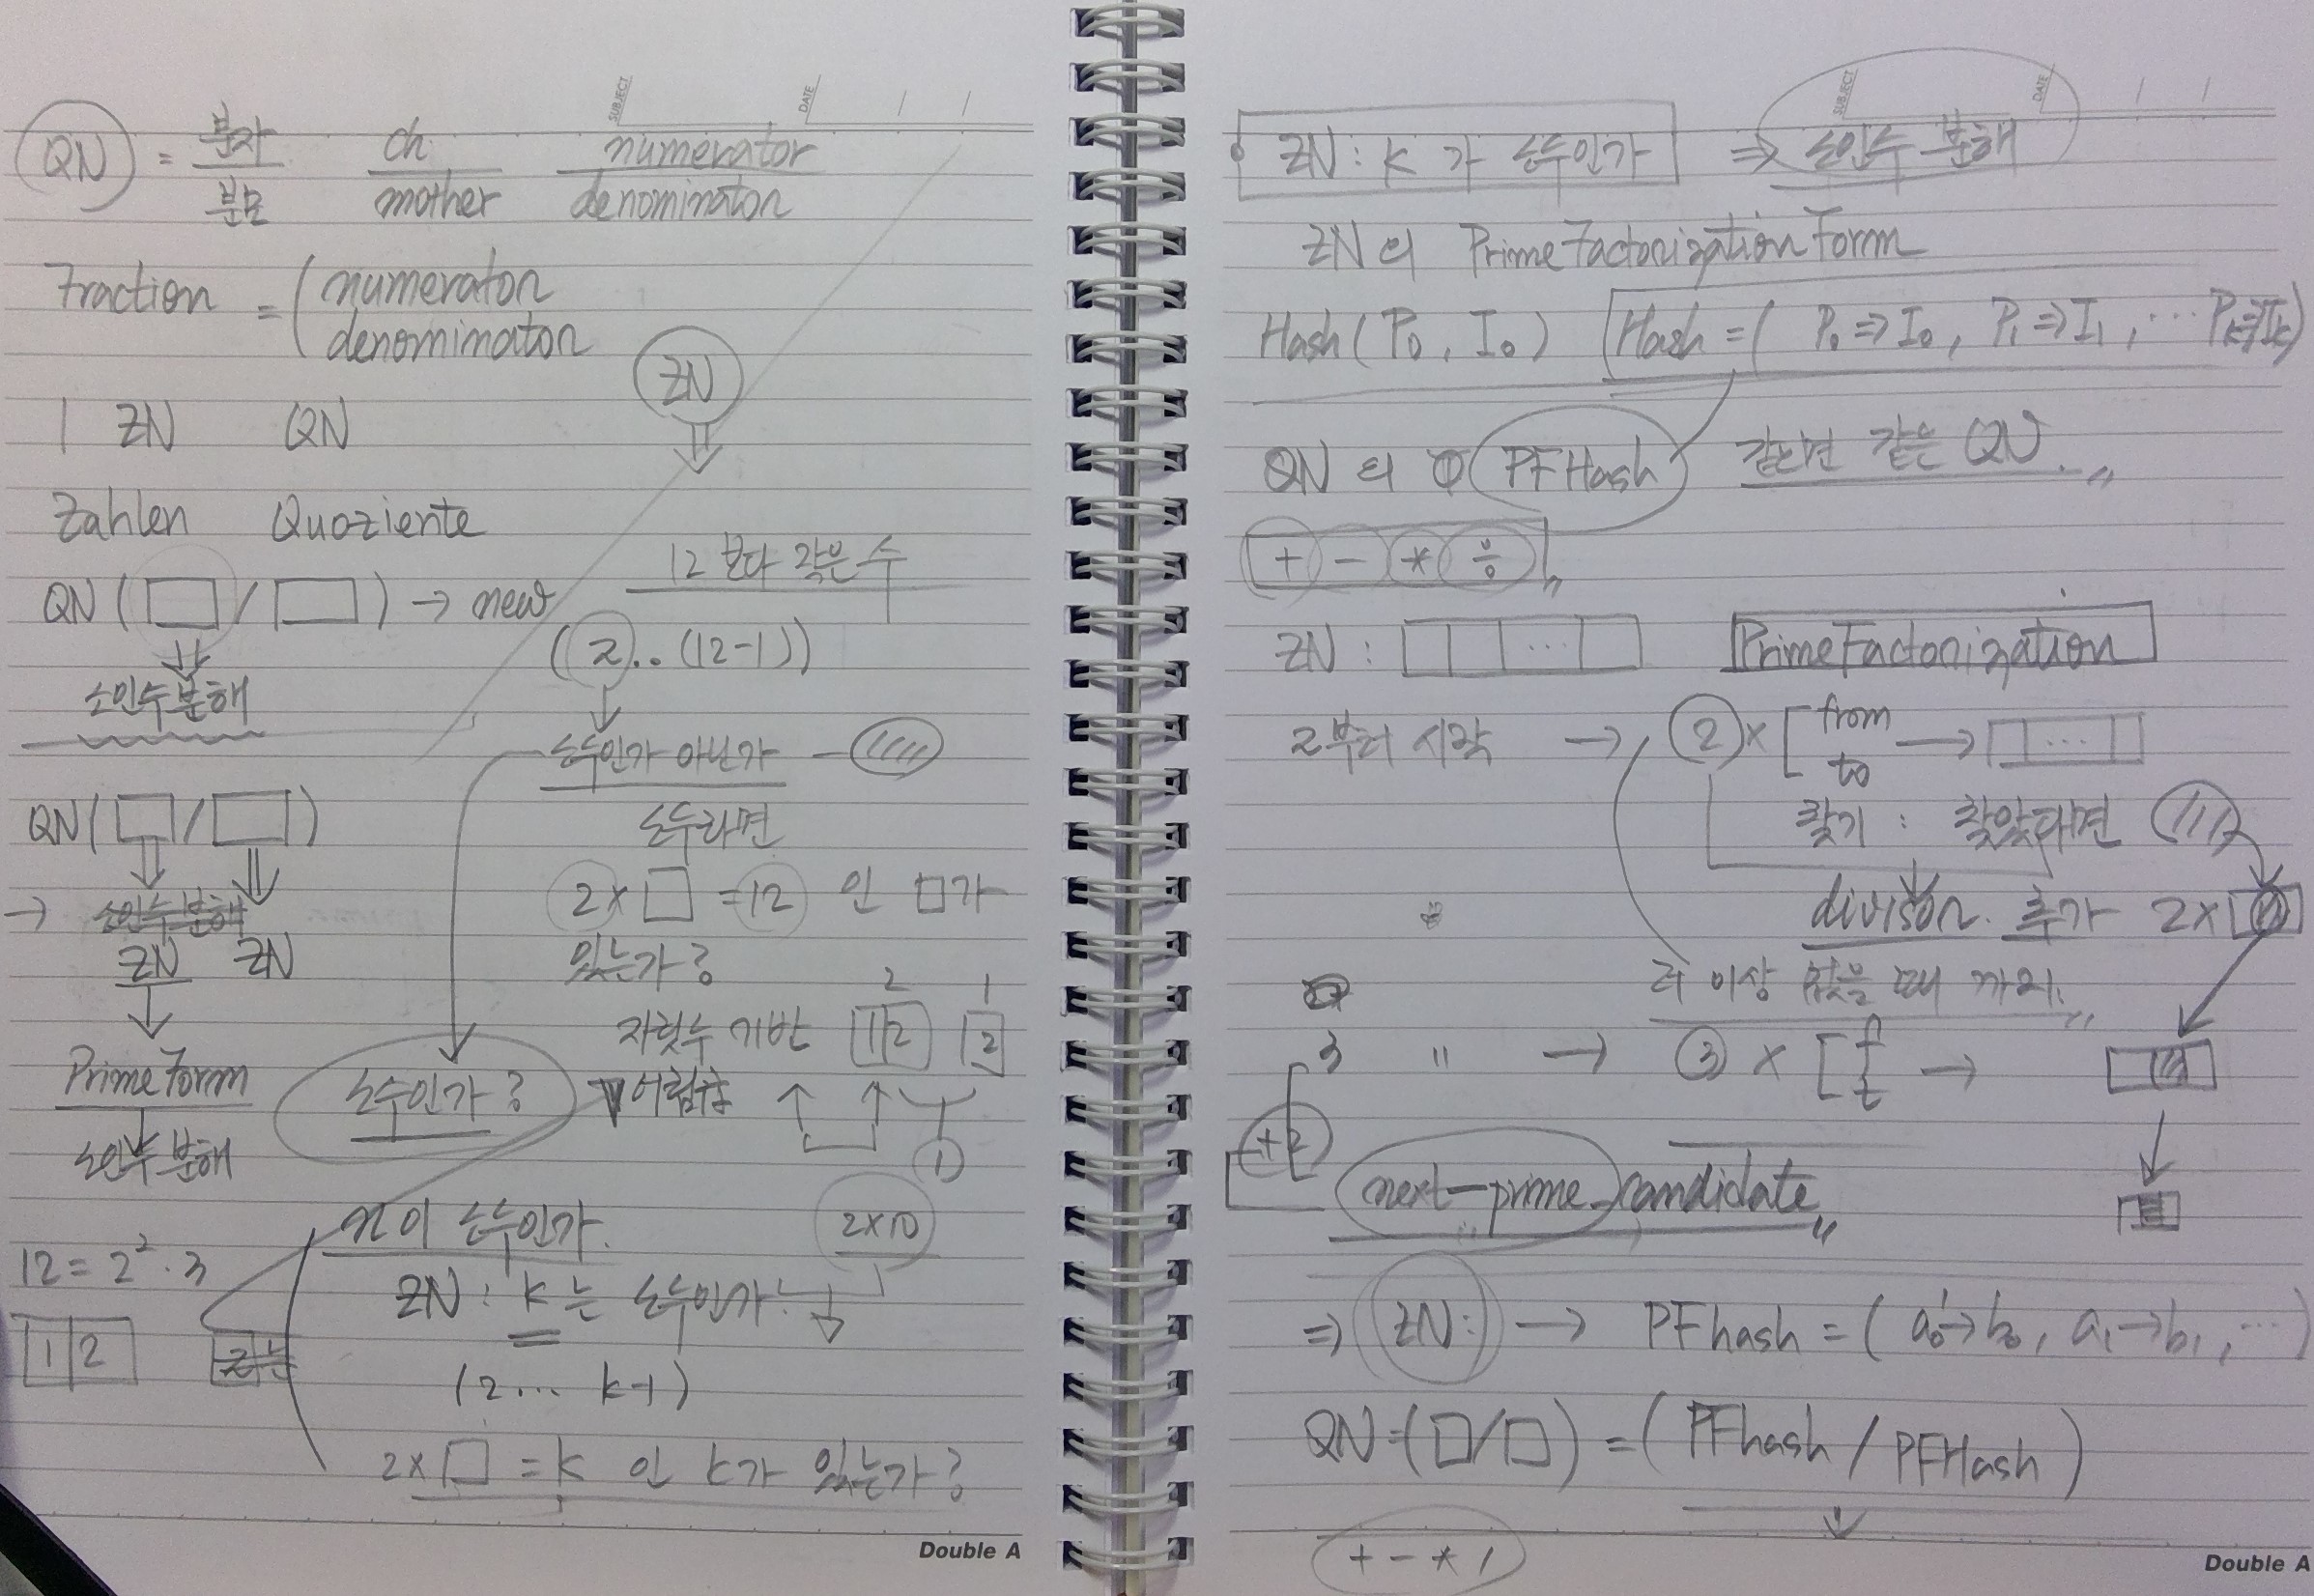 SUBJECT DATE / /
QN = 분자/분모 ch/mother numerator/denominator
Fraction = ( numerator
denominator
ZN
| ZN QN
Zahlen Quoziente
12 보다 작은 수
QN ( □ / □ ) → new
(2..(12-1))
소인수분해
소수인가 아닌가
소수라면
QN ( □ / □ )
2 × □ = 12 인 □가
있는가?
→ 소인수분해
ZN ZN
2 1
자릿수 기반 1 2 2
Prime Form
소수인가?
소인수 분해
1
n이 소수인가.
2×10
12 = 2² · 3
ZN : k 는 소수인가?
1 2
(2 ... k-1)
2 × □ = k 인 k가 있는가?
Double A
SUBJECT DATE / /
ZN : k 가 소수인가 ⇒ 소인수 분해
ZN의 Prime Factorization Form
Hash ( P₀, I₀ ) Hash = ( P₀ ⇒ I₀, P₁ ⇒ I₁, ⋯ Pₖ ⇒ Iₖ )
QN 의 PFHash 같으면 같은 QN.
+ - * ÷
ZN : □ □ ... □ PrimeFactorization
2부터 시작 → 2 × [ from
to → □ ... □
찾기 : 찾았다면
divisor. 추가 2×
더 이상 없을 때 까지.
3 " → 3 × [ f
t →
+2
next-prime-candidate
⇒ ZN: → PFhash = ( a₀→b₀, a₁→b₁, ⋯ )
QN = ( □ / □ ) = ( PFhash / PFHash )
+ - * /
Double A